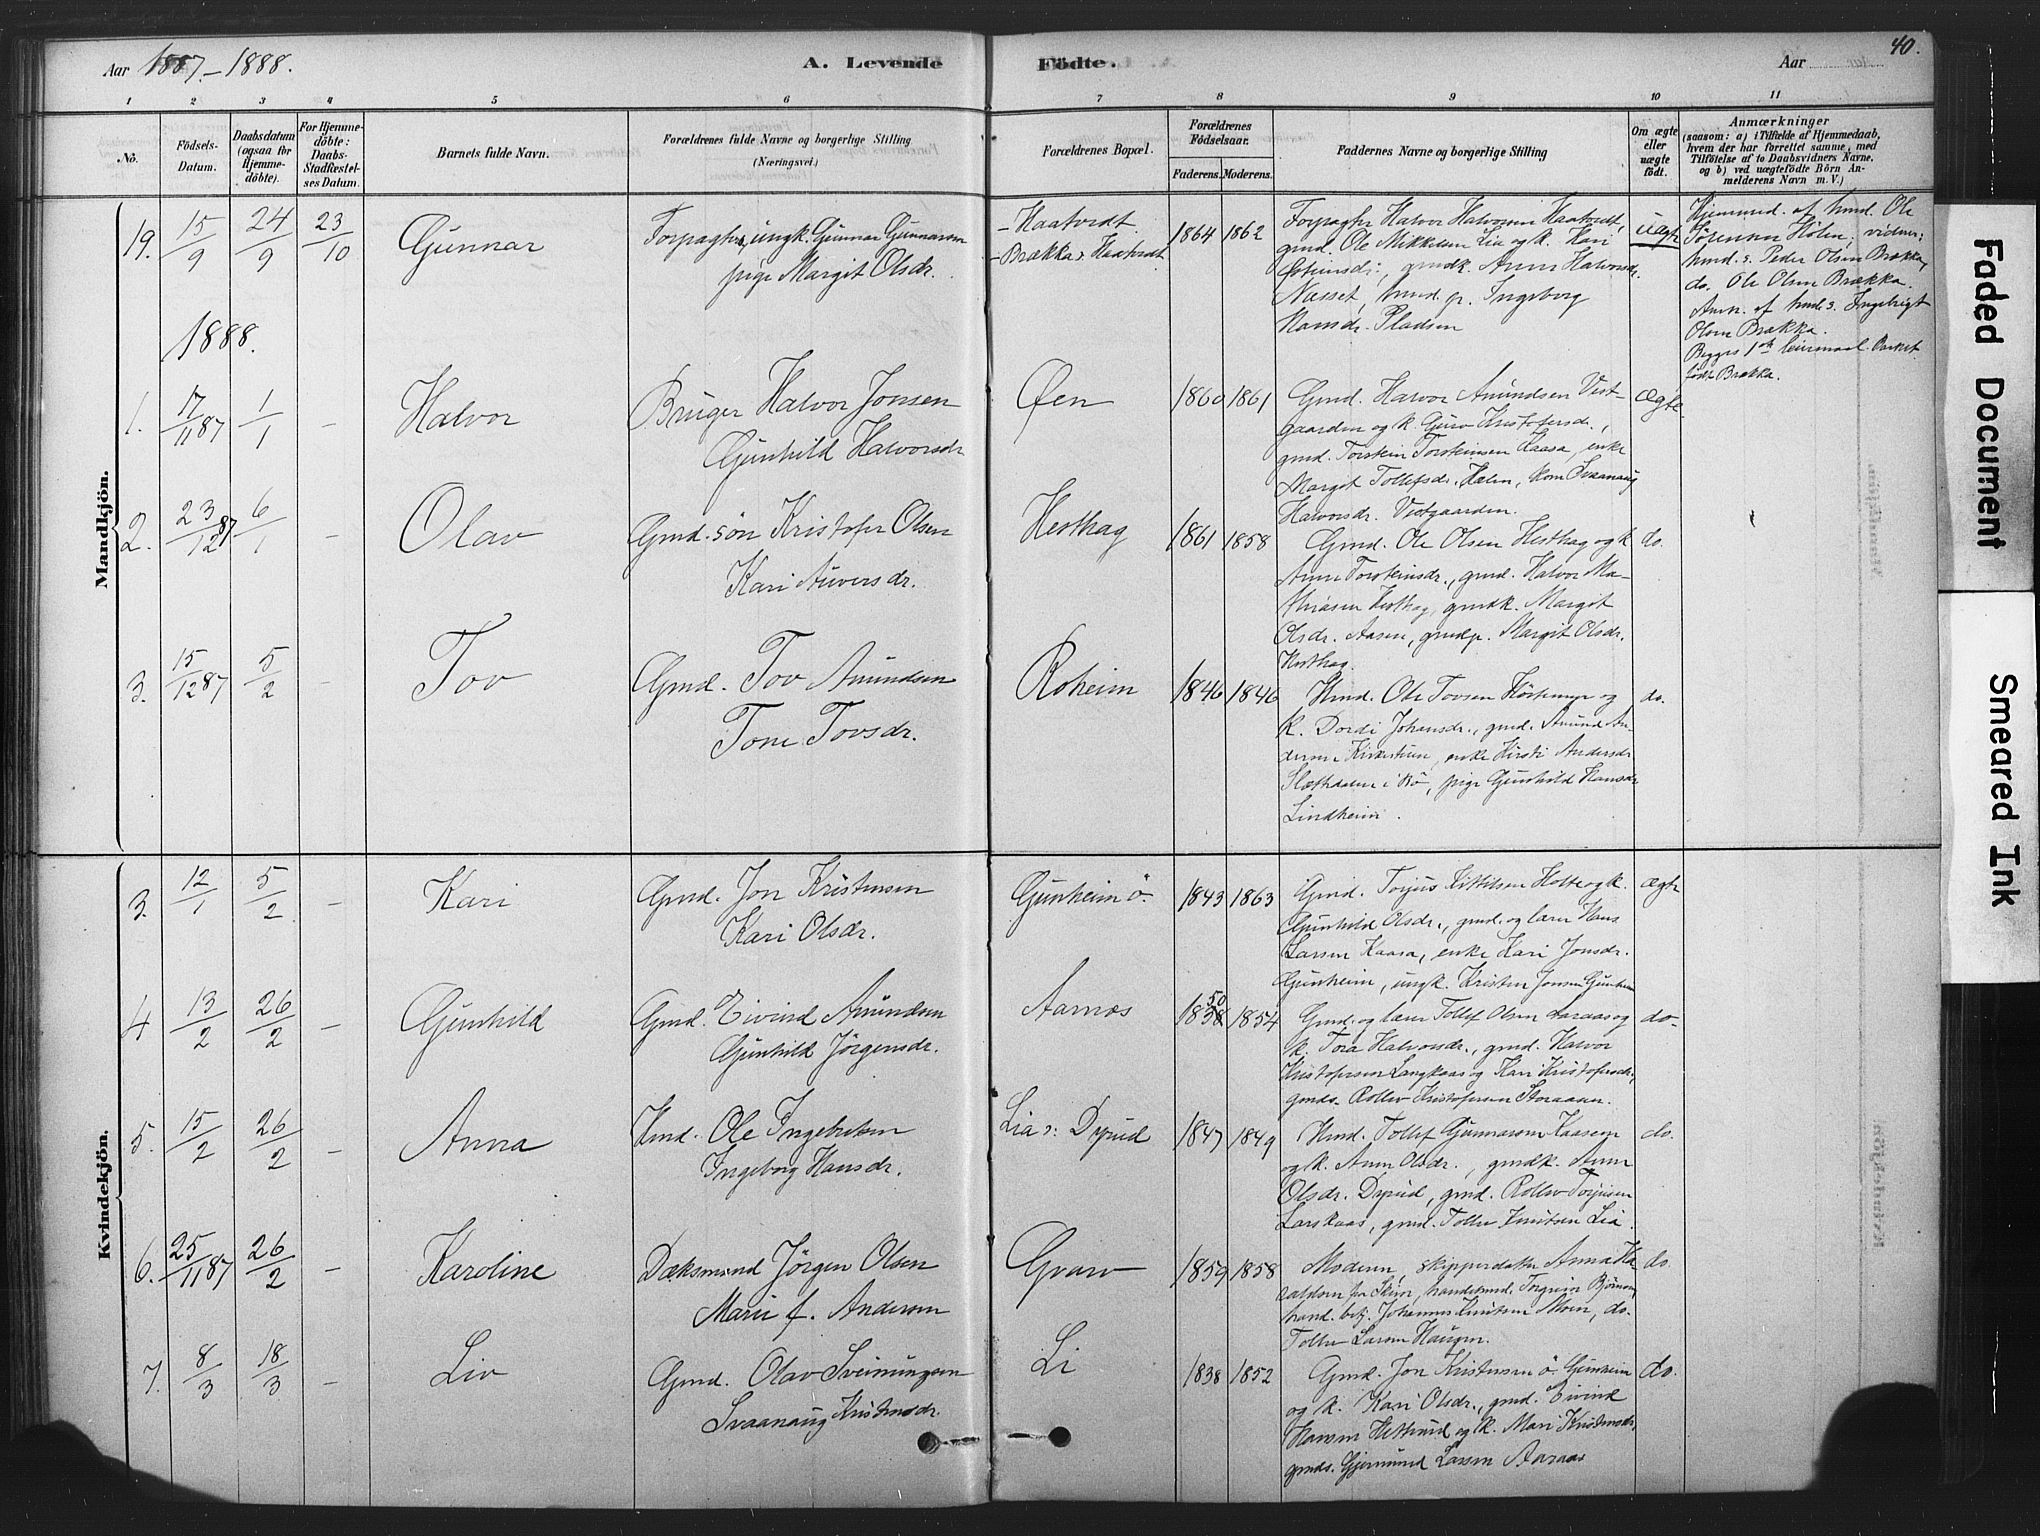 Aar 1887-1888.
A. Levende Födte.
Aar
40.
1 2 3 4 5 6 7 8 9 10 11
No.
Födsels-Datum.
Daabsdatum (ogsaa for Hjemme-döbte).
For Hjemme-döbte: Daabs-Stadfæstel-ses Datum.
Barnets fulde Navn.
Forældrenes fulde Navne og borgerlige Stilling
(Næringsvei.)
Forældrenes Bopæl.
Forældrenes Födselsaar.
Faderens. Moderens.
Faddernes Navne og borgerlige Stilling
Om ægte eller uægte födt.
Anmærkninger
(saasom: a) i Tilfælde af Hjemmedaab,
hvem der har forrettet samme, med
Tilföielse af to Daabsvidners Navne,
og b) ved uægtefödte Börn An-
melderens Navn m. V.)
Mandkjön.
19. 15/9 24/9 23/10 Gunnar
Forpagter, ungk. Gunnar Gunnarsen
pige Margit Olsdr.
- Haatvedt
- Brækka s. Haatvedt
1864 1862
Forpagter Halvor Halvorsen Haatvedt,
gmd. Ole Mikkelsen Lia og k. Kari
gmdk. Anne Halvorsdr.
Næsset, hmd. p. Ingeborg
Hansdr. Pladsen
uægte
Hjemmed. af hmd. Ole
Sörensen Holen; vidner:
hmd. s. Peder Olsen Brækka,
do. Ole Olsen Brækka.
Anm. af hmd s. Ingebrigt
Olsen Brækka.
Begges 1ste leiermaal. Barnet
född Brækka.
1888.
1. 17/11 87 1/1 - Halvor
Bruger Halvor Jonsen
Gunhild Halvorsdr
Øen
1860 1861
Gmd. Halvor Amundsen Vest-
gaarden og k. Guro Kristofersdr.,
gmd. Torstein Torsteinsen Kaasa, enke
Margit Tollefsdr. Hælen, kone Svanaug
Halvorsdr. Vestgaarden.
ægte
2. 23/12 87 6/1 - Olav
Gmd. sön Kristofer Olsen
Kari Auversdr.
Hesthag
1861 1858
Gmd. Ole Olsen Hesthag og k
Anne Torsteinsdr., gmd. Halvor Ma-
thiasen Hesthag, gmdk. Margit
Olsdr. Aasen, gmdp. Margit Olsdr.
Hesthag.
do.
3. 15/12 87 5/2 - Tov
Gmd. Tov Amundsen
Tone Tovsdr.
Roheim
1846 1846
Hmd. Ole Tovsen og
k. Dordi Johansdr., gmd. Amund An-
dersen Kirkestuen, enke Kirsti Andersdr
i Bö, pige Gunhild Hansdr
Lindheim.
do.
Kvindekjön.
3. 12/1 5/2 - Kari
Gmd. Jon Kristensen
Kari Olsdr.
Gunheim ö.
1843 1863
Gmd. Torjus Kittilsen Holte og k.
Gunhild Olsdr., gmd. og lærer Hans
Larsen Kaasa, enke Kari Jonsdr.
Gunheim, ungk. Kristen Jonsen Gunheim
ægte
4 13/2 26/2 - Gunhild
Gmd. Eivind Amundsen
Gunhild Jörgensdr.
Aarnæs
50
1838 1854
Gmd. og lærer Tollef Olsen Aaraas og
k. Tora Halvorsdr., gmd. Halvor
Kristofersen Langkaas og Kari Kristofersdr.,
gmds. Rollev Kristofersen Storaasen.
do-
5. 15/2 26/2 - Anna
Hmd. Ole Ingebretsen
Ingeborg Hansdr.
Lia s: Dyrud
1847 1849
Hmd. Tollef Gunnarsen Kaasen
og k. Anne Olsdr., gmdk. Anne
Olsdr. Dyrud, gmd. Rollev Torjusen
Larskaas, gmd. Tollev Knutsen Lia.
do.
6. 25/11 87 26/2 - Karoline
Dæksmand Jörgen Olsen
Marie f. Andersen
Grave
1859 1858
Moderen, skipperdatter Anna Ha
raldsen fra Skien, handelsmd. Ingvar Björnsen
hand. betj. Johannes Knutsen Moen, do.
Tollev Larsen Haugen.
do.
7. 8/3 18/3 - Liv
Gmd. Olav Sveinungsen
Svaanaug Kristensdr.
Li
1838 1852
Gmd. Jon Kristensen ö Gunheim
og k. Kari Olsdr., gmd. Eivind
Hansen og k. Mari Kristensdr,
gmds. Gjermund Larsen Aaraas
do.
Faded Document
Smeared Ink